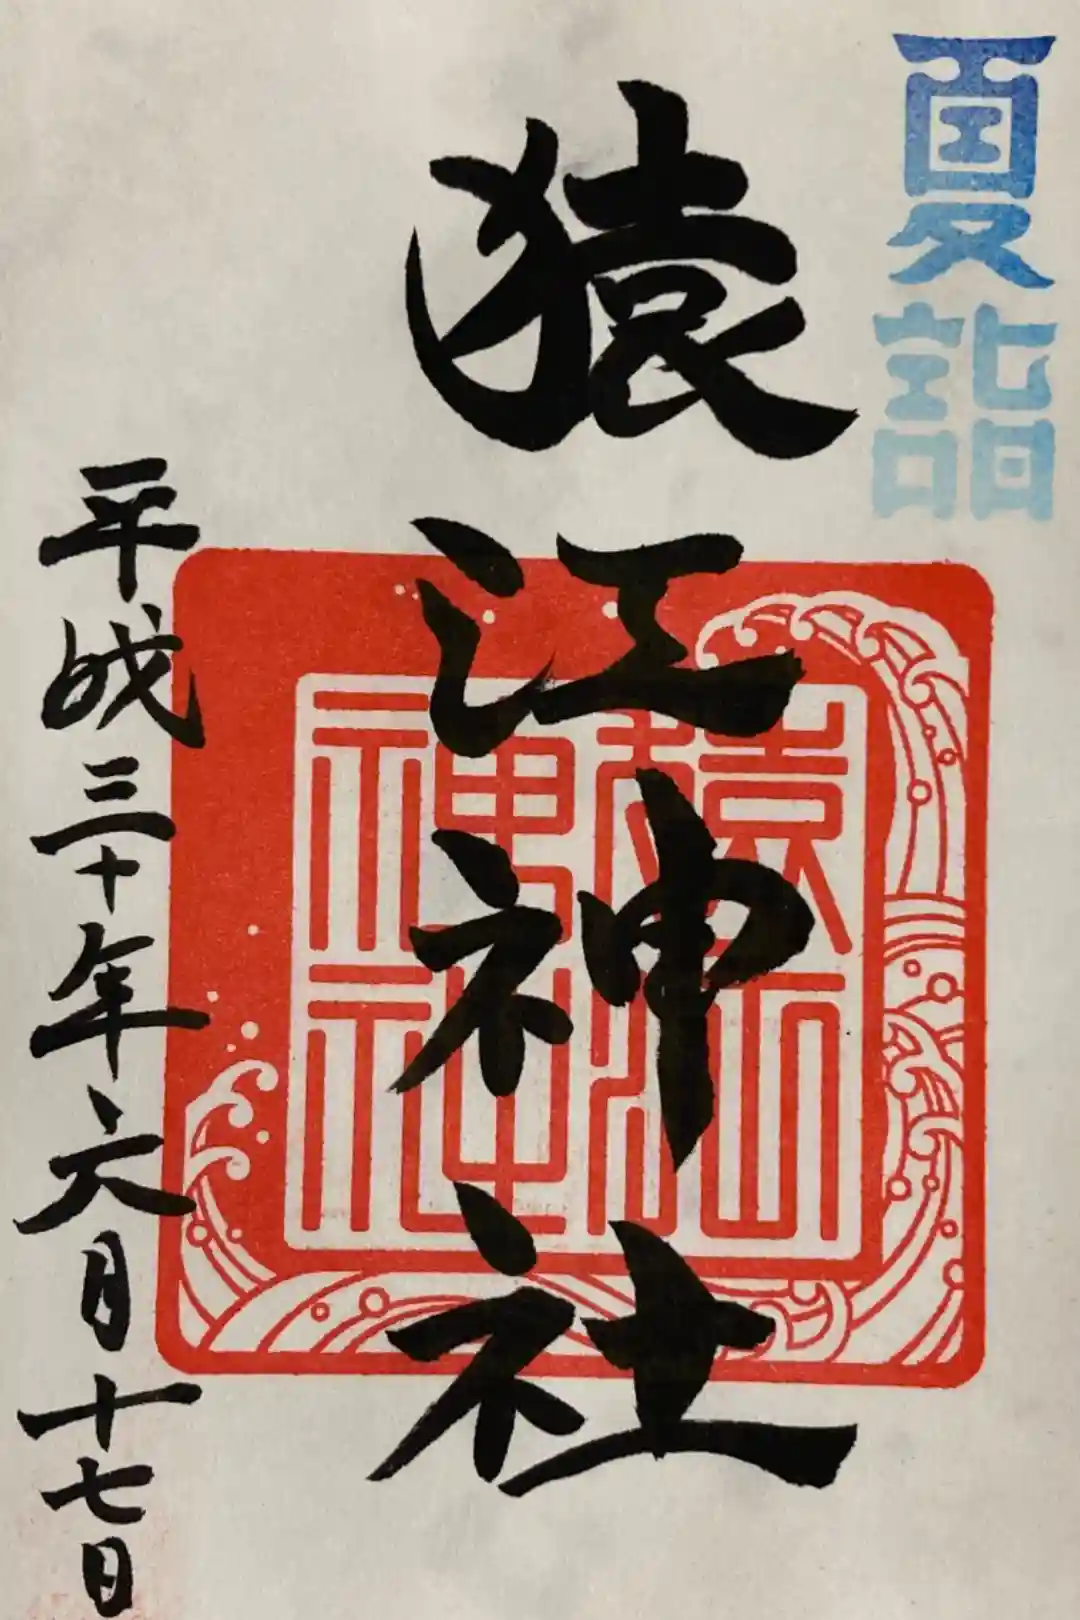 夏詣
猿江神社
猿江
神社
平成三十年六月十七日